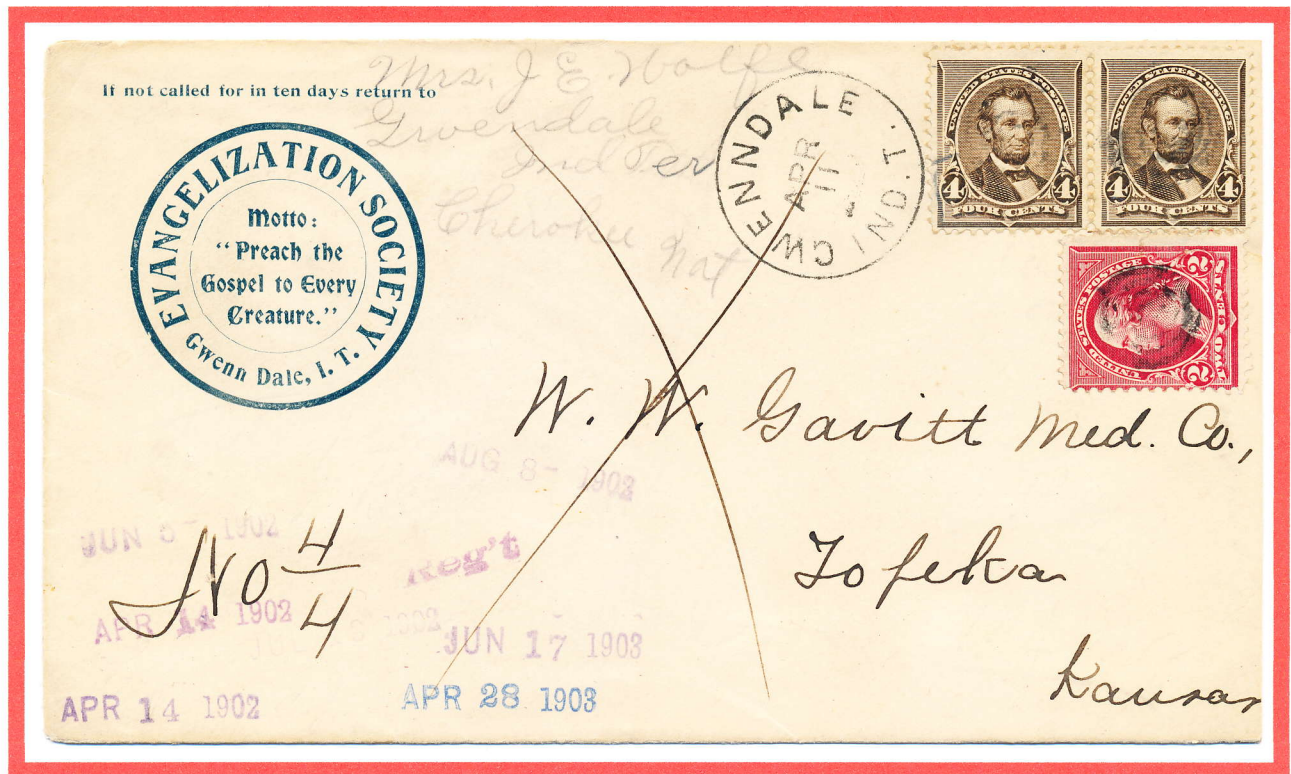 If not called for in ten days return to
EVANGELIZATION SOCIETY
Motto:
"Preach the
Gospel to Every
Creature."
Gwenn Dale, I. T.
Mrs. J. E. Wolfe
Gwendale
Ind Ter
Cherokee
Nat
GWENNDALE IND. T.
APR
11
UNITED STATES POSTAGE
4 4
FOUR CENTS
UNITED STATES POSTAGE
4 4
FOUR CENTS
UNITED STATES POSTAGE
2 2
W. W. Gavitt Med. Co.,
Topeka
Kansas
AUG 8- 1902
JUN 5- 1902
No 4/4
Reg't
APR 14 1902
1902
JUN 17 1903
APR 14 1902
APR 28 1903